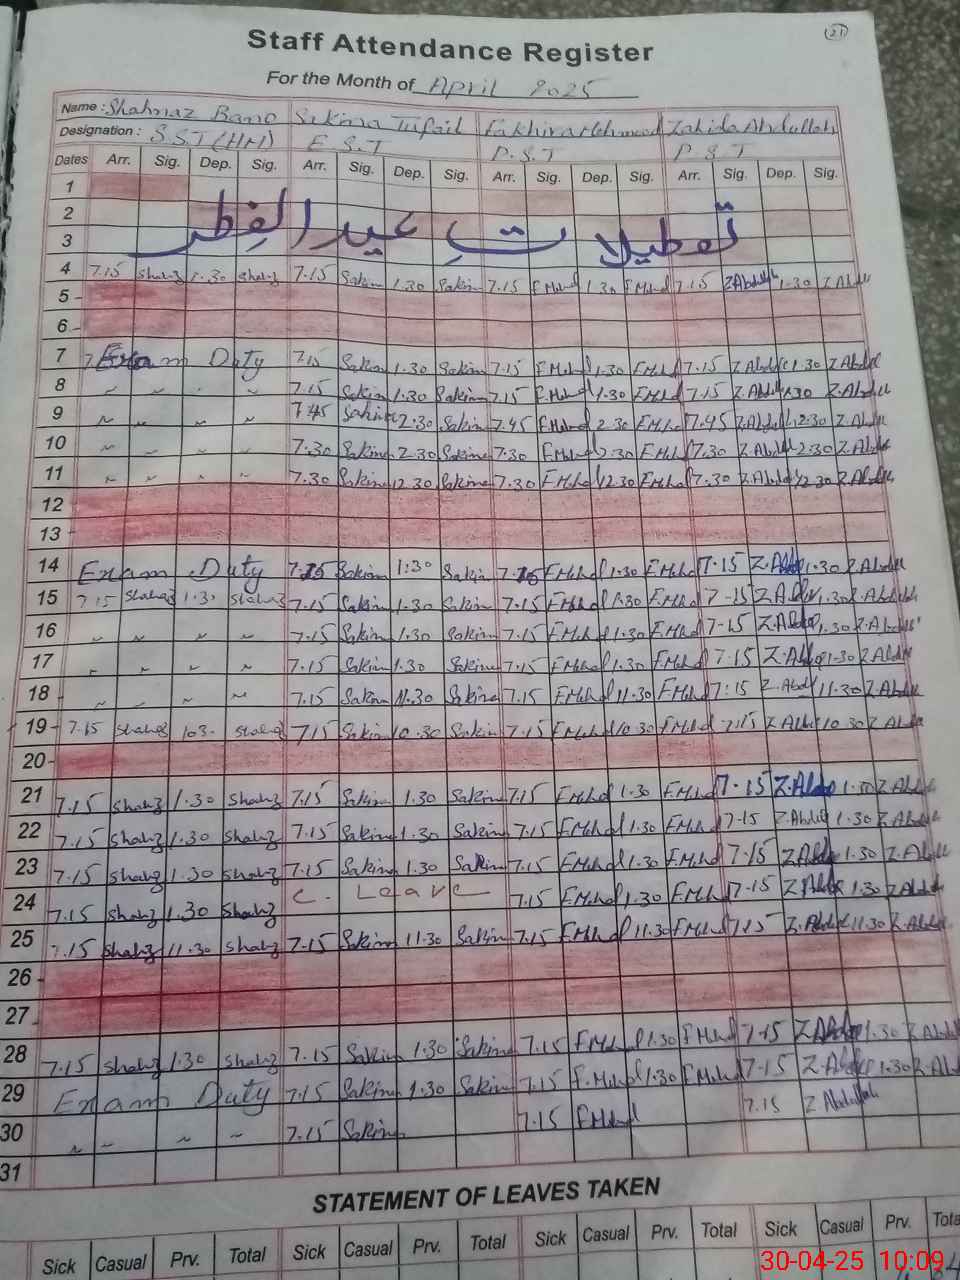 21
Staff Attendance Register
For the Month of April 2025
Name : Shahnaz Bano Sakina Tufail Fakhira Mehmood Zahida Abdullah
Designation : S.S.T (HM) E.S.T P.S.T P.S.T
Dates Arr. Sig. Dep. Sig. Arr. Sig. Dep. Sig. Arr. Sig. Dep. Sig. Arr. Sig. Dep. Sig.
1
2
3
تعطیلات عید الفطر
4 7.15 Shahz 1.30 Shahz 7.15 Sakina 1.30 Sakina 7.15 F.Mehd 1.30 F.Mehd 7.15 Z.Abdullah 1.30 Z.Abdull
5
6
7 Exam Duty 7.15 Sakina 1.30 Sakina 7.15 F.Mehd 1.30 F.Mehd 7.15 Z.Abdull 1.30 Z.Abdul
8 ~ ~ . ~ 7.15 Sakina 1.30 Sakina 7.15 F.Mehd 1.30 F.Mehd 7.15 Z.Abdul 1.30 Z.Abdul
9 ~ ~ 7.45 Sakina 2.30 Sakina 7.45 F.Mehd 2.30 F.Mehd 7.45 Z.Abdul 12.30 Z.Abdul
10 ~ ~ ~ 7.30 Sakina 2.30 Sakina 7.30 F.Mehd 2.30 F.Mehd 7.30 Z.Abdul 2.30 Z.Abdul
11 ~ ~ ~ ~ 7.30 Sakina 12.30 Sakina 7.30 F.Mehd 12.30 F.Mehd 7.30 Z.Abdul 12.30 Z.Abdul
12
13
14 Exam Duty 7.15 Sakina 1:30 Sakin 7.15 F.Mehd 1.30 F.Mehd 7.15 Z.Abdul 1.30 Z.Abdull
15 7.15 Shahaz 1.30 Shahaz 7.15 Sakina 1.30 Sakina 7.15 F.Mehd 1.30 F.Mehd 7-15 Z.Abdul 1.30 Z.Abdullah
16 ~ ~ ~ ~ 7.15 Sakina 1.30 Sakina 7.15 F.Mehd 1.30 F.Mehd 7-15 Z.Abdul 1.30 Z.Abdull
17 ~ ~ ~ ~ 7.15 Sakina 1.30 Sakina 7.15 F.Mehd 1.30 F.Mehd 7.15 Z.Abdul 1.30 Z.Abdul
18 ~ ~ ~ ~ 7.15 Sakina 11.30 Sakina 7.15 F.Mehd 11.30 F.Mehd 7:15 Z.Abdul 11.30 Z.Abdul
19 7.15 Shahaz 103. Shahaz 7.15 Sakina 10.30 Sakina 7.15 F.Mehd 10.30 F.Mehd 7.15 Z.Abdul 10.30 Z.Abdu
20
21 7.15 Shahz 1.30 Shahz 7.15 Sakina 1.30 Sakina 7.15 F.Mehd 1.30 F.Mehd 7.15 Z.Abdul 1.30 Z.Abdul
22 7.15 Shahz 1.30 Shahz 7.15 Sakina 1.30 Sakina 7.15 F.Mehd 1.30 F.Mehd 7-15 Z.Abdul 1.30 Z.Abdul
23 7.15 Shahz 1.30 Shahz 7.15 Sakina 1.30 Sakina 7.15 F.Mehd 1.30 F.Mehd 7-15 Z.Abdul 1.30 Z.Abdull
24 7.15 Shahz 1.30 Shahz C. Leave 7.15 F.Mehd 1.30 F.Mehd 7-15 Z.Abdul 1.30 Z.Abdul
25 7.15 Shahz 11.30 Shahz 7.15 Sakina 11.30 Sakina 7.15 F.Mehd 11.30 F.Mehd 7.15 Z.Abdul 11.30 Z.Abdul
26
27
28 7.15 Shahz 1.30 Shahz 7.15 Sakina 1.30 Sakina 7.15 F.Mehd 1.30 F.Mehd 7-15 Z.Abdul 1.30 Z.Abdul
29 Exam Duty 7.15 Sakina 1.30 Sakina 7.15 F.Mehd 1.30 F.Mehd 7-15 Z.Abdul 1.30 Z.Abd
30 ~ ~ ~ ~ 7.15 Sakina 7.15 F.Mehd 7.15 Z.Abdullah
31
STATEMENT OF LEAVES TAKEN
Sick Casual Prv. Total Sick Casual Prv. Total Sick Casual Prv. Total Sick Casual Prv. Tota
30-04-25 10:09